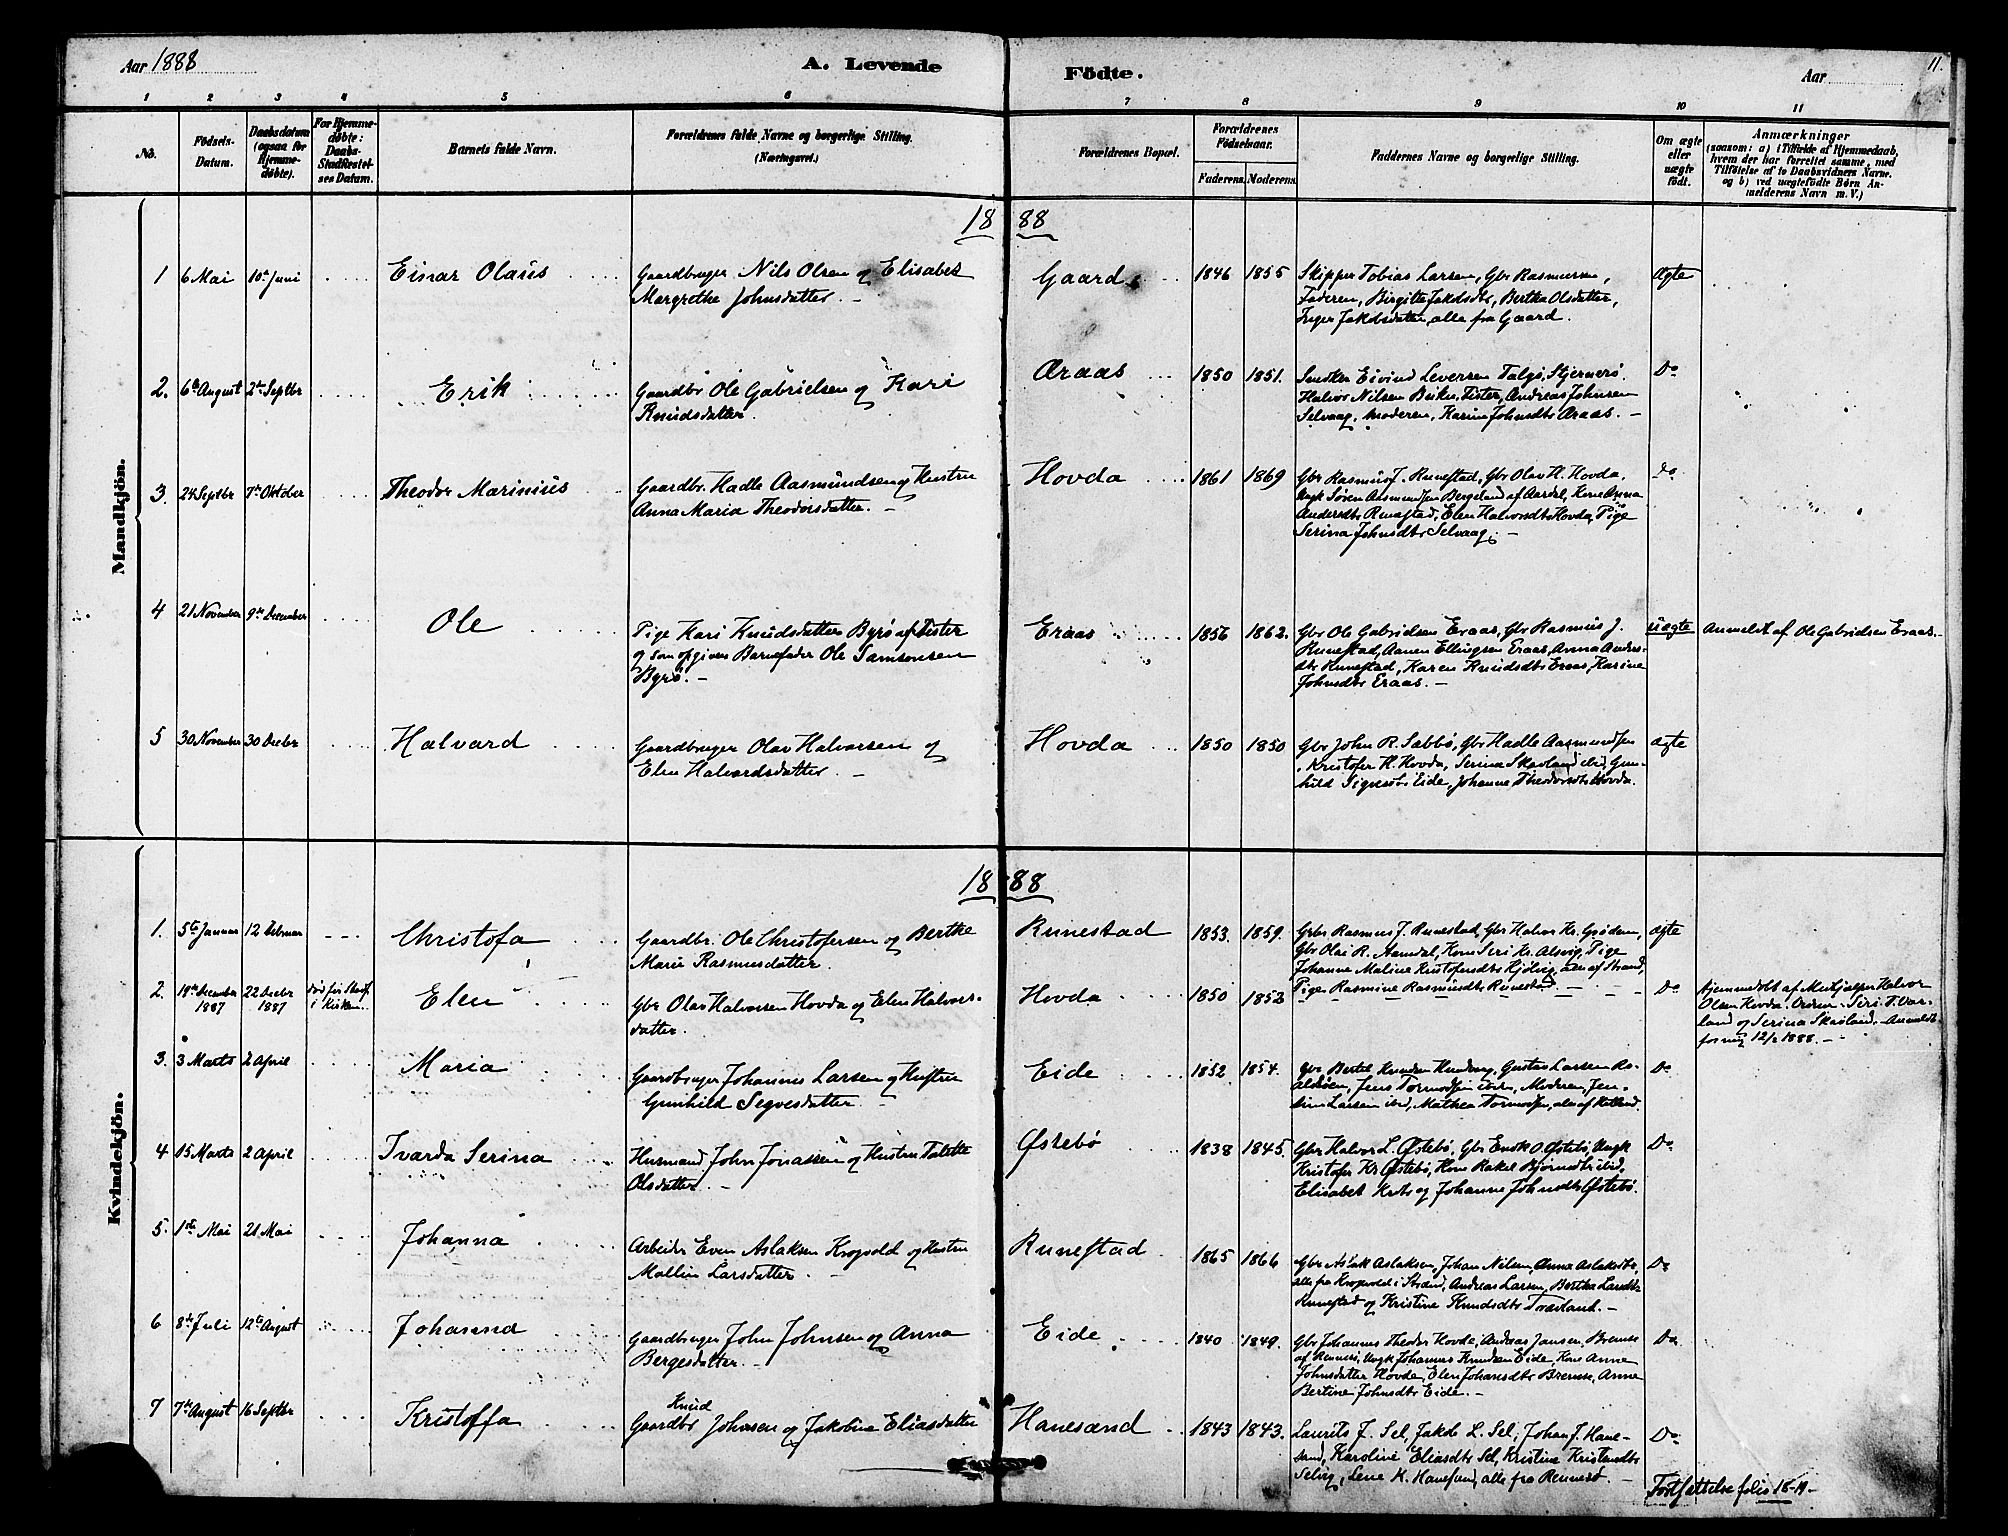 Aar 1888
A. Levende
Födte.
Aar
11.
1 2 3 4 5 6 7 8 9 10 11
No.
Födsels-
Datum.
Daabsdatum
(ogsaa for
Hjemme-
døbte).
For Hjemme-
døbte:
Daabs-
Stadfæstel-
ses Datum.
Barnets fulde Navn.
Forældrenes fulde Navne og borgerlige Stilling.
(Næringsvei.)
Forældrenes Bopæl.
Forældrenes
Födselsaar.
Faderens. Moderens.
Faddernes Navne og borgerlige Stilling.
Om ægte
eller
uægte
födt.
Anmærkninger
(saasom: a) i Tilfælde af Hjemmedaab,
hvem der har forrettet samme, med
Tilföielse af to Daabsvidners Navne.
og b) ved uægtefödte Börn An-
melderens Navn m. V.)
Mandkjön.
18 88
1 6 Mai 10de Juni
Einar Olaus
Gaardbruger Nils Olsen og Elisabet
Margrethe Johnsdatter. -
Gaard
1846 1855
Skipper Tobias Larsen, Gbr Rasmussen,
Faderen, Birgitte Jakobsdtr, Bertha Olsdatter,
Inger Jakobsdatter, alle fra Gaard.
Ægte
2. 6te August 2den Septbr
Erik
Gaardbr Ole Gabrielsen og Kari
Knudsdatter.
Øraas
1850 1851.
Eivind Leversen Talgø, Stjernerø.
Halvor Nilsen Fister, Andreas Johnsen
Selvaag, Moderen, Karine Johnsdtr Øraas. -
Do
3. 24 Septbr 7de Oktober
Theodor Marinius
Gaardbr. Hadle Aasmundsen og Hustru
Anna Maria Theodorsdatter. -
Hovda
1861 1869
Gbr Rasmus J. Runestad, Gbr Olav H. Hovda,
Ungk Søren Aasmundsen Bergeland af Aardal, Kone Anna
Andersdtr Runestad, Elen Halvorsdtr Hovda, Pige
Serina Johnsdtr Selvaag. -
Do
4 21 November 9de December
Ole
Pige Kari Knudsdatter Byrø af Fister
og som opgiven Barnefader Ole Samsonsen
Byrø. -
Eraas
1856 1862.
Gbr Ole Gabrielsen Eraas, Gbr Rasmus J.
Runestad, Aanen Ellingsen Eraas, Anna Anders-
dtr Runestad, Karen Knudsdtr Eraas, Karine
Johnsdtr Eraas. -
Uægte
Anmeldt af Ole Gabrielsen Eraas. -
5 30 November 30 Decbr
Halvard
Gaardbruger Olav Halvorsen og
Elen Halvardsdatter. -
Hovda
1850 1850
Gbr John R. Sæbbø, Gbr Hadle Aasmundsen
, Kristofer H. Hovda, Serina Skaaland ibid, Gun-
hild Sigvesdtr Eide, Johanne Theodorsdtr Hovda.
ægte
Kvindekjön.
18 88
1. 5te Januar 12 Februar
Christofa
Gaardbr. Ole Christofersen og Berthe
Marie Rasmusdatter.
Runestad
1853. 1859.
Gbr Rasmus J. Runestad, Gbr Halvor Kr.
Gbr Olai R. Kone Siri Kr. Alsvig, Pige
Johanne Maline Kristofersdtr Kjølvig, alle af Strand,
Pige Rasmine Rasmusdtr Runestad
ægte
2. 18de December
1887
22 Decbr
1887
død før Stadf
i Kirken
Elen
Gbr Olav Halvorsen Hovda og Elen Halvors-
datter.
Hovda
1850 1852
Do
Hjemmedøbt af Halvor
Olsen Hovda. Siri T. Var-
land og Serina Skaaland. - Anmeldt
for mig 12/2 1888. -
3. 3 Marts 2 April
Maria
Gaardbruger Johannes Larsen og Hustru
Gunhild Segvesdatter
Eide
1852. 1854.
Gbr Bertel Knudsen Gustav Larsen
Jens Tormodsen ibid, Moderen, Jen-
sine Larsen ibid, Mathea Tormodsen,
Do
4 15 Marts 2 April
Tvarda Serina
Husmand John Jonassen og Hustru Talette
Olsdatter. -
Østebø
1838 1845.
Gbr Halvor L. Østebø, Gbr Enok O Østebø, Ungk
Kristofer Kr Østebø, Kone Rakel Bjørnsdtr ibid,
Elisabet og Johanne Johnsdtr Østebø.
Do
5. 1ste Mai 21 Mai
Johanna
Arbeider Even Aslaksen Kropvold og Hustru
Mallin Larsdatter. -
Runestad
1865 1866
Gbr Aslak Aslaksen, Johan Nilsen, Anna Aslaksdtr,
alle fra Kropvold i Strand, Andreas Larsen, Bertha Larsdtr
Runestad og Kristine Knudsdtr -
Do
6 8de Juli 12te August
Johanna
Gaardbruger John Johnsen og Anna
Bergesdatter. -
Eide
1840 1849.
Gbr Johannes Theodor Hovda, Andreas Jansen, Bremse
af Rennesø, Ungk Johannes Knudsen Eide, Kone Anne
Johnsdatter Hovda, Elen Johansdtr Bremse, Anne
Bertine Johnsdtr Eide. -
Do
7 7de August 16 Septbr
Kristoffa
Knud
Gaardbr Johnsen og Jakobine Eliasdatter
Hanesand
1843 1843.
Laurits J. Sel, Jakob L. Sel, Johan J. Hane-
sand, Karoline Eliasdtr Sel, Kristine Kristensdtr
Selvig, Lene H. Hanesand, alle fra Rennesø. -
Do
Fortsættelse folio 18-19 -